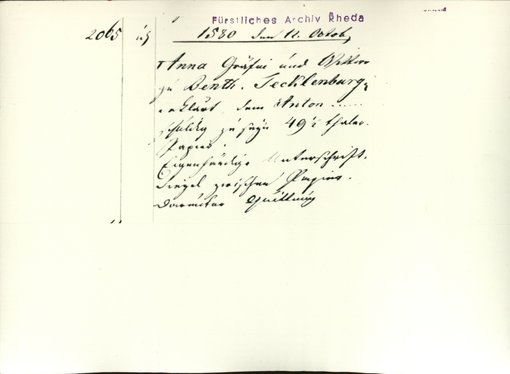 Fürstliches Archiv Rheda
2065 1580 den 11. Octob.
Anna Gräfin und Wittwe
zu Benth. Tecklenburg,
erklärt dem Anton .....
schuldig zu seyn 49½ thaler.
Papier.
Eigenhändige Unterschrift.
Siegel zwischen Papier.
Darunter Quittung